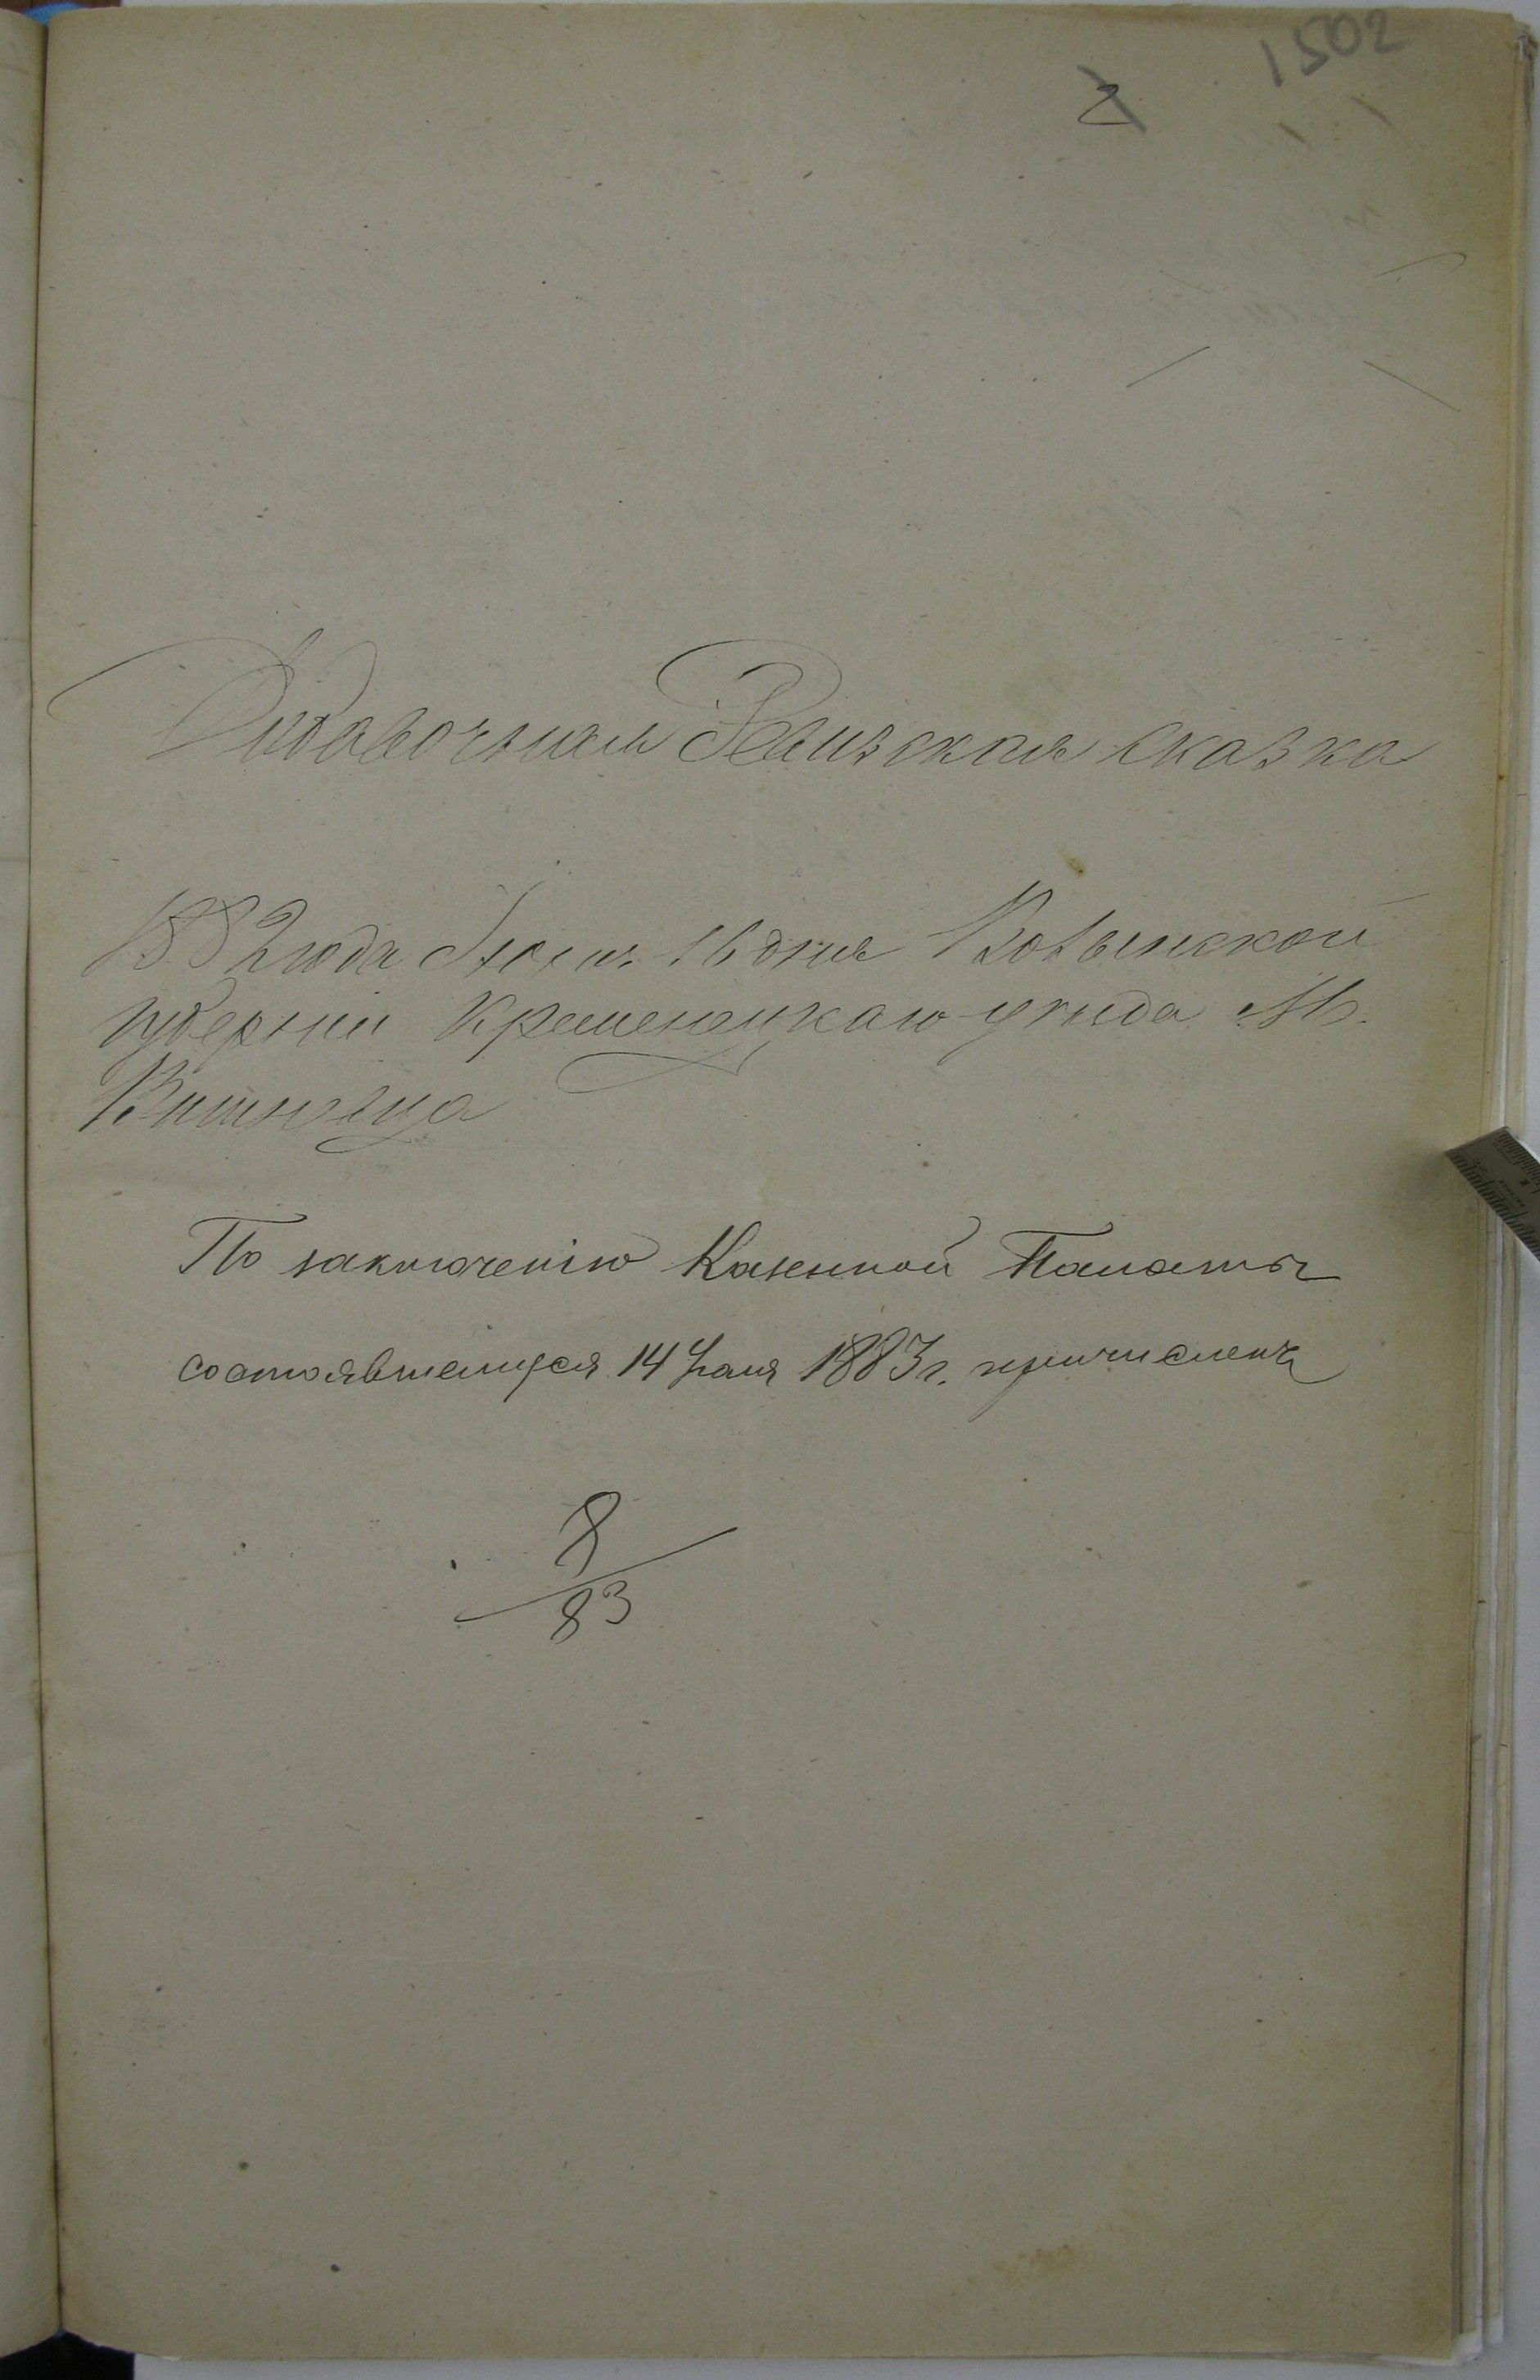 1502
2
Дабавочная Ревизская сказка
1882 года Июня 16 дня Волынской
губернии Кременецкаго уезда М.
Вишневца
По заключенію Казенной Палаты
состоявшемуся 14 Января 1883 г. причислены
8
83